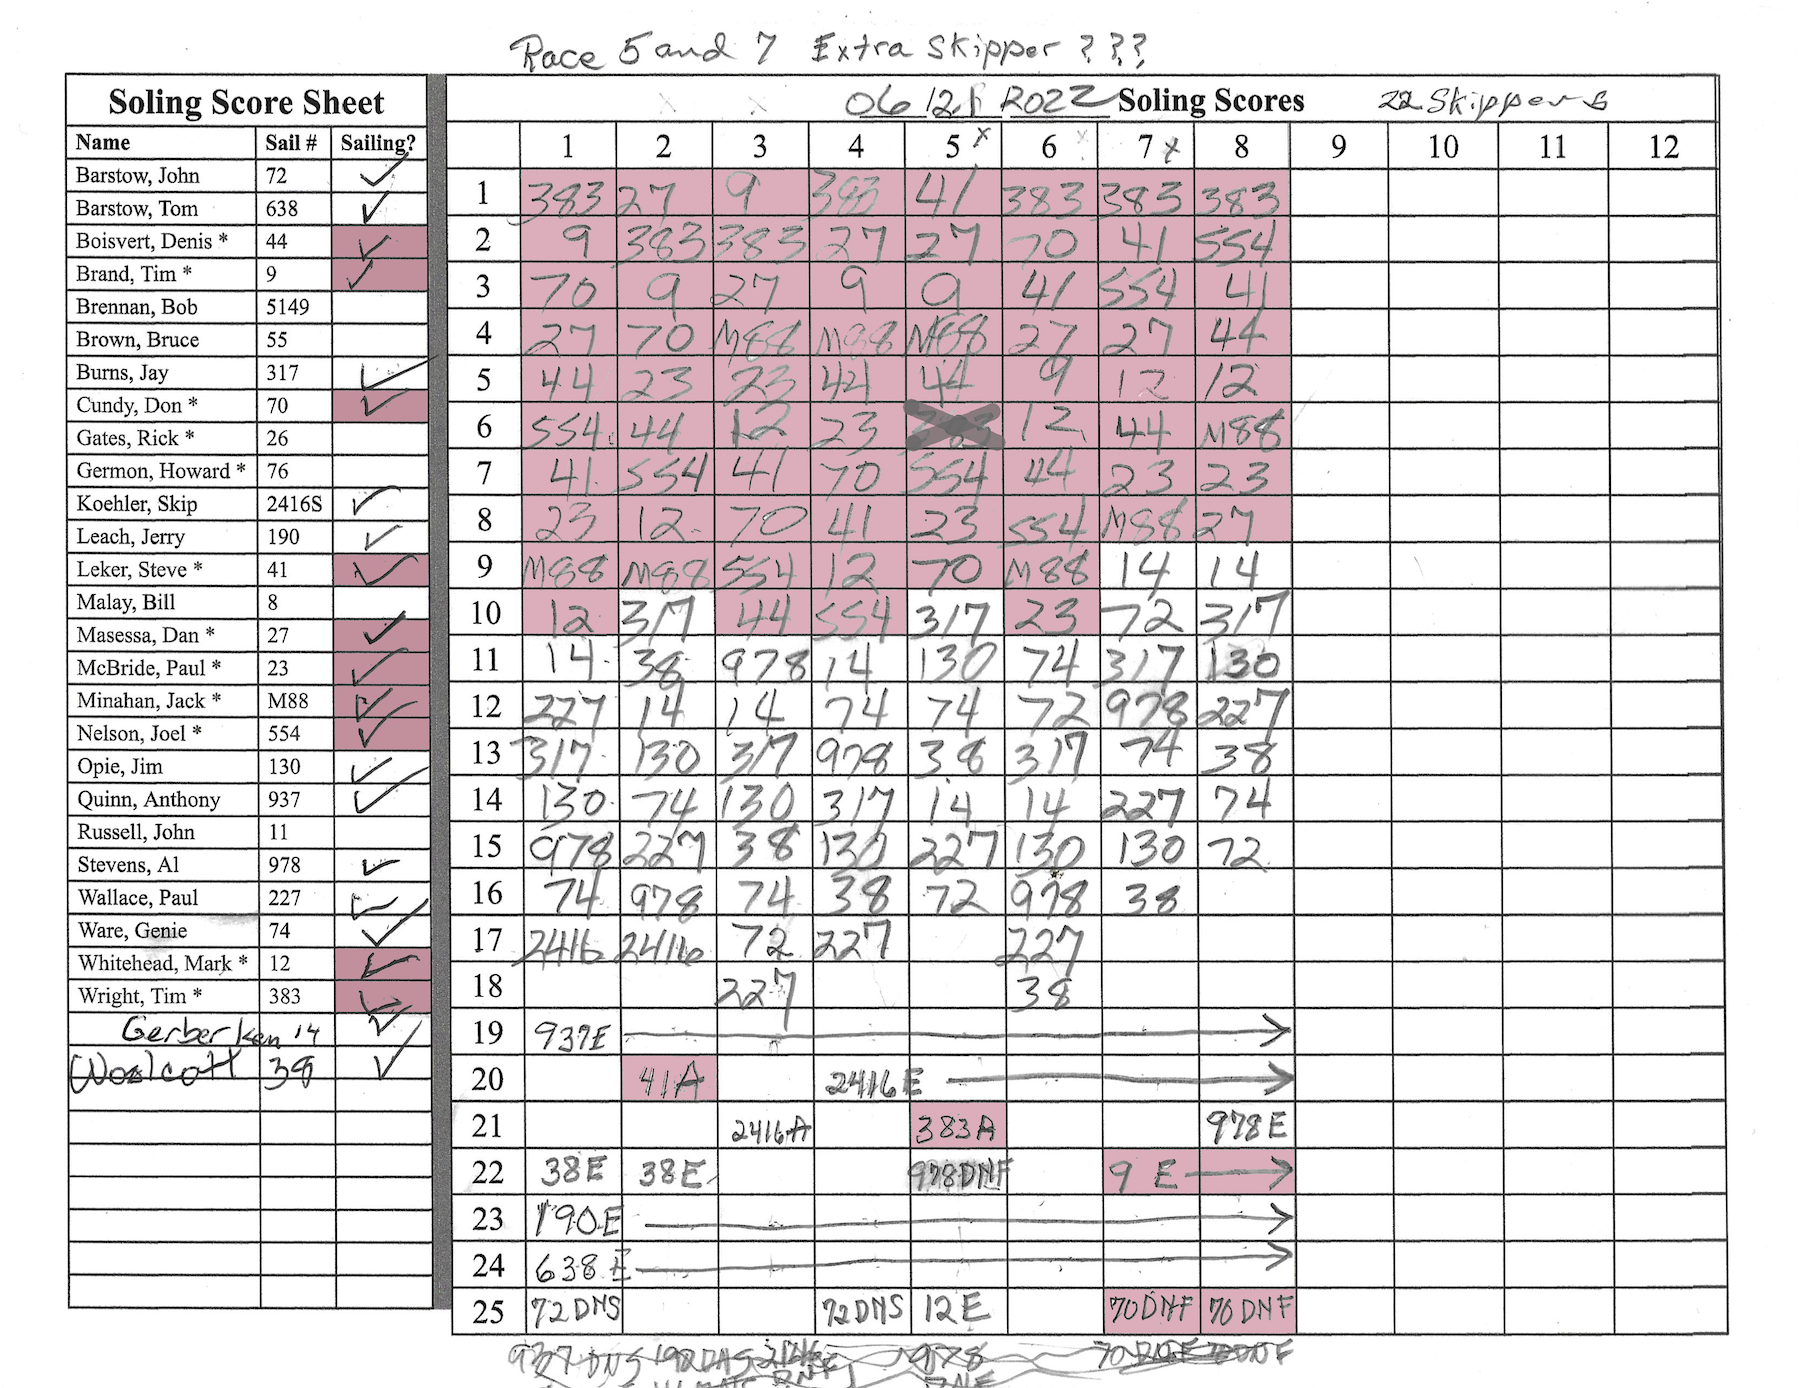 Race 5 and 7 Extra Skipper ???
Soling Score Sheet
06 12 2022 Soling Scores 22 Skippers
Name Sail # Sailing?
1 2 3 4 5 x 6 x 7 x 8 9 10 11 12
Barstow, John 72 ✓
Barstow, Tom 638 ✓
Boisvert, Denis * 44 ✓
Brand, Tim * 9 ✓
Brennan, Bob 5149
Brown, Bruce 55
Burns, Jay 317 ✓
Cundy, Don * 70 ✓
Gates, Rick * 26
Germon, Howard * 76
Koehler, Skip 2416S ✓
Leach, Jerry 190 ✓
Leker, Steve * 41 ✓
Malay, Bill 8
Masessa, Dan * 27 ✓
McBride, Paul * 23 ✓
Minahan, Jack * M88 ✓
Nelson, Joel * 554 ✓
Opie, Jim 130 ✓
Quinn, Anthony 937 ✓
Russell, John 11
Stevens, Al 978 ✓
Wallace, Paul 227 ✓
Ware, Genie 74 ✓
Whitehead, Mark * 12 ✓
Wright, Tim * 383 ✓
Gerber Ken 14 ✓
Woolcott 38 ✓
1 383 27 9 383 41 383 383 383
2 9 383 383 27 27 70 41 554
3 70 9 27 9 9 41 554 41
4 27 70 M88 M88 M88 27 27 44
5 44 23 23 44 44 9 12 12
6 554 44 12 23 12 44 M88
7 41 554 41 70 554 44 23 23
8 23 12 70 41 23 554 M88 27
9 M88 M88 554 12 70 M88 14 14
10 12 317 44 554 317 23 72 317
11 14 38 978 14 130 74 317 130
12 227 14 14 74 74 72 978 227
13 317 130 317 978 38 317 74 38
14 130 74 130 317 14 14 227 74
15 978 227 38 130 227 130 130 72
16 74 978 74 38 72 978 38
17 2416 2416 72 227 227
18 227 38
19 937E
20 41A 2416E
21 2416A 383A 978E
22 38E 38E 978DNF 9 E
23 190E
24 638E
25 72DNS 72DNS 12E 70DNF 70DNF
937 DNS 978
DNF